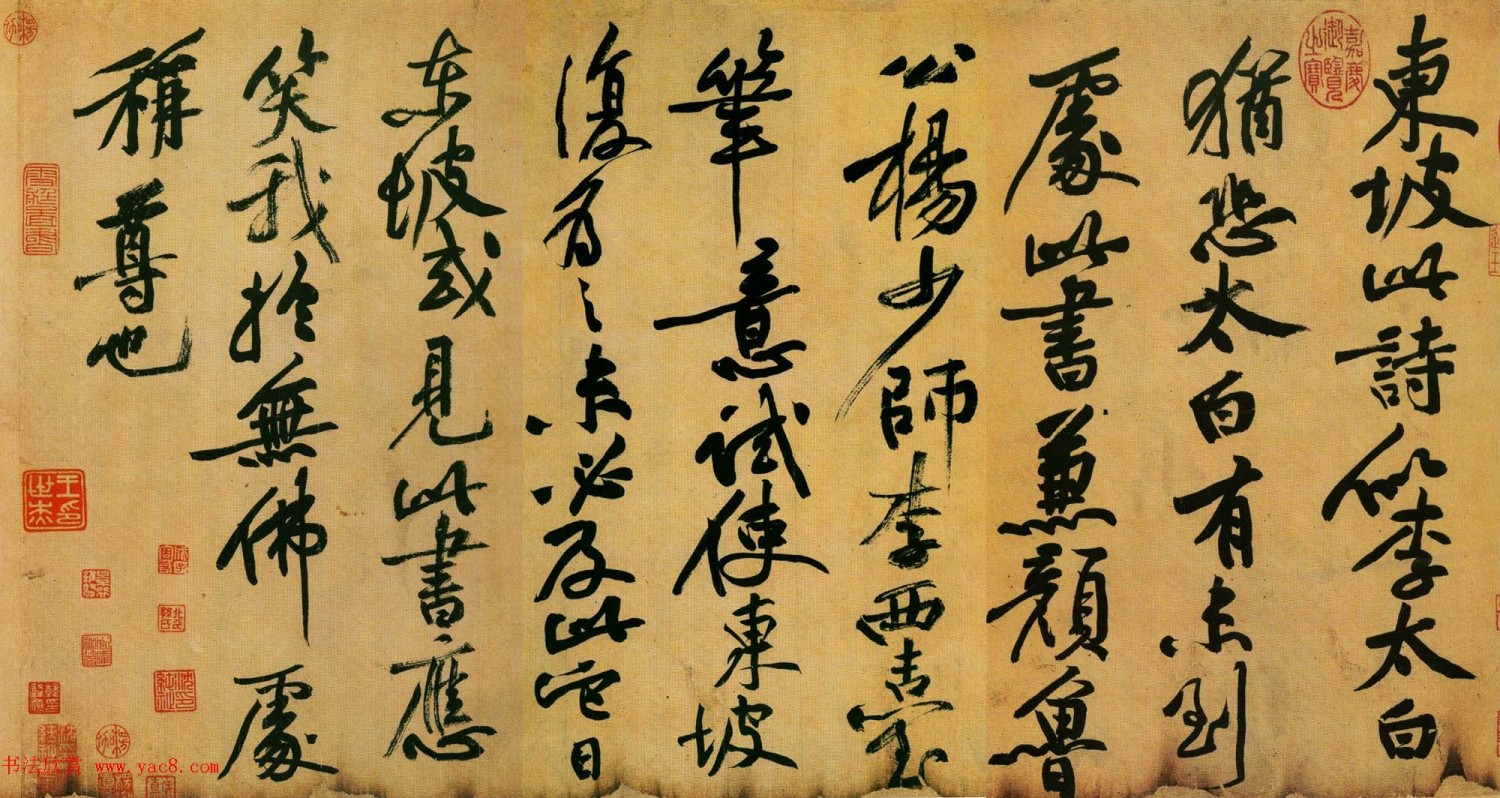 東坡此詩似李太白
猶恐太白有未到
處此書兼顏魯
公楊少師李西臺
筆意試使東坡
復為之未必及此它日
东坡或見此書應
笑我於無佛處
稱尊也
嘉慶御覽之寶
书法欣赏 www.yac8.com